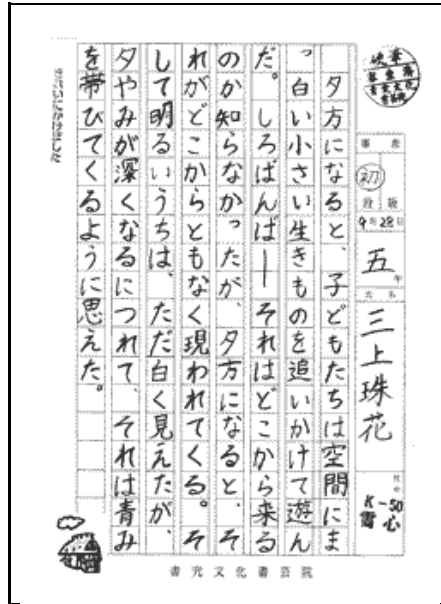 硬筆
審査
初
段 級
9月28日
五年
氏名
三上珠花
K-50
雪心
夕方になると、子どもたちは空間にま
っ白い小さい生きものを追いかけて遊ん
だ。しろばんば――それはどこから来る
のか知らなかったが、夕方になると、そ
れがどこからともなく現われてくる。そ
して明るいうちは、ただ白く見えたが、
夕やみが深くなるにつれて、それは青み
を帯びてくるように思えた。
きれいにかけました
書究文化書芸院